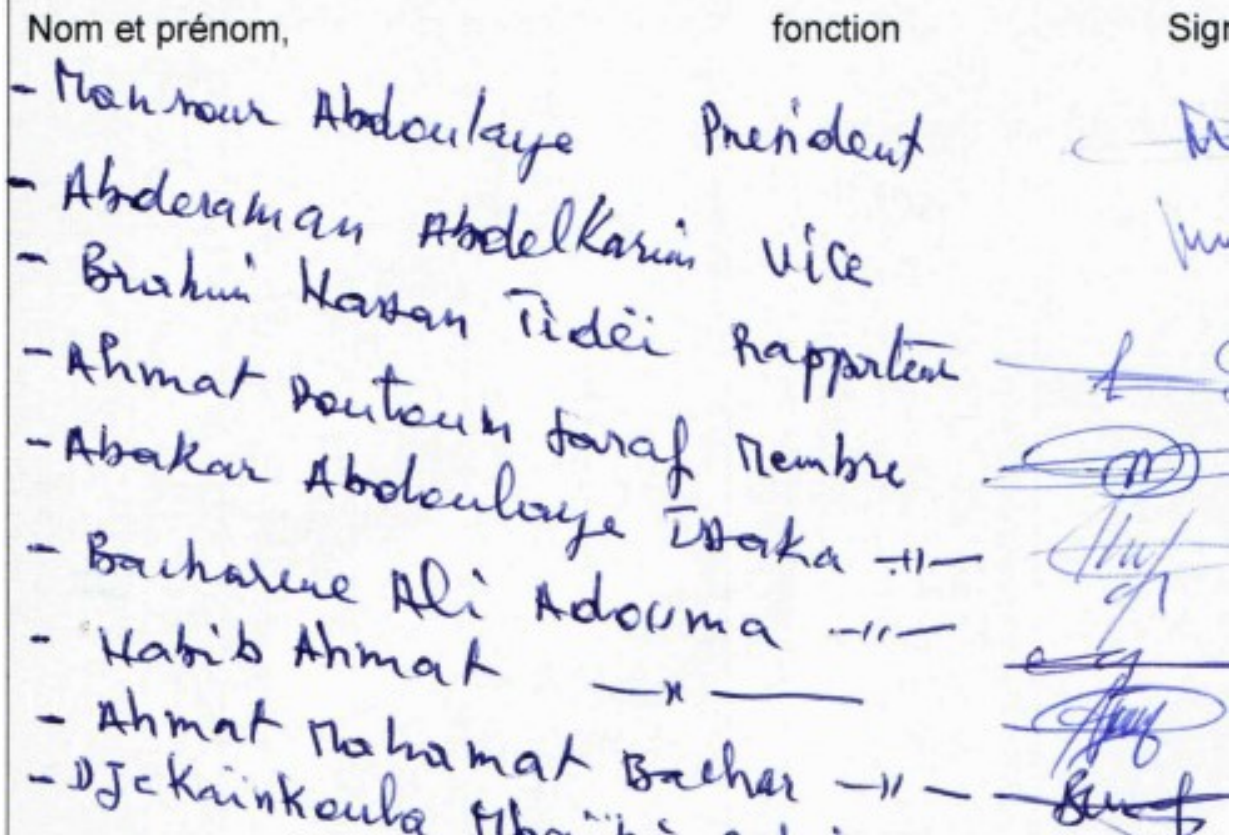 Nom et prénom, fonction Sign
- Mansour Abdoulaye President
- Abderaman Abdelkarim Vice
- Brahim Hassan Tidéi Rapporteur
- Ahmat Doutoum Saraf Membre
- Abakar Abdoulaye Issaka -"-
- Bacharene Ali Adouma -"-
- Habib Ahmat -"-
- Ahmat Mahamat Bachar -"-
- Djekaïnkoula